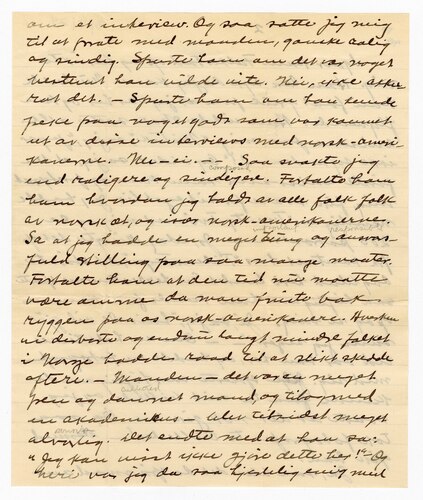 om et interview. Og saa satte jeg mig
til at prate med manden, ganske rolig
og sindig. Spurte ham om det var noget
bestemt han vilde vite. Nei, ikke akku-
rat det. — Spurte ham om han kunde
peke paa noget godt som var kommet
ut av disse interviews med norsk-ameri-
kanerne. Ne-ei. — - Saa snakte jeg
end roligere og sindigere. Fortalte ham
composed
ham hvordan jeg holdt av alle folk folk
av norsk æt, og især norsk-amerikanerne.
Sa at jeg hadde en meget og ansvars-
fuld stilling paa saa mange maater.
Fortalte ham at den tid nu maatte
være omme da man fniste bak
ryggen paa os norsk-amerikanere. Hverken
vi derborte og endnu langt mindre folket
i Norge hadde raad til at slikt skedde
oftere. — Manden — det var en meget
pen og dannet mand, og tilogmed
en akademikus — blev tilsidst meget
alvorlig. Det endte med at han sa:
"Jeg kan visst ikke gjøre dette her!" — Og
heri var jeg da saa hjertelig enig med